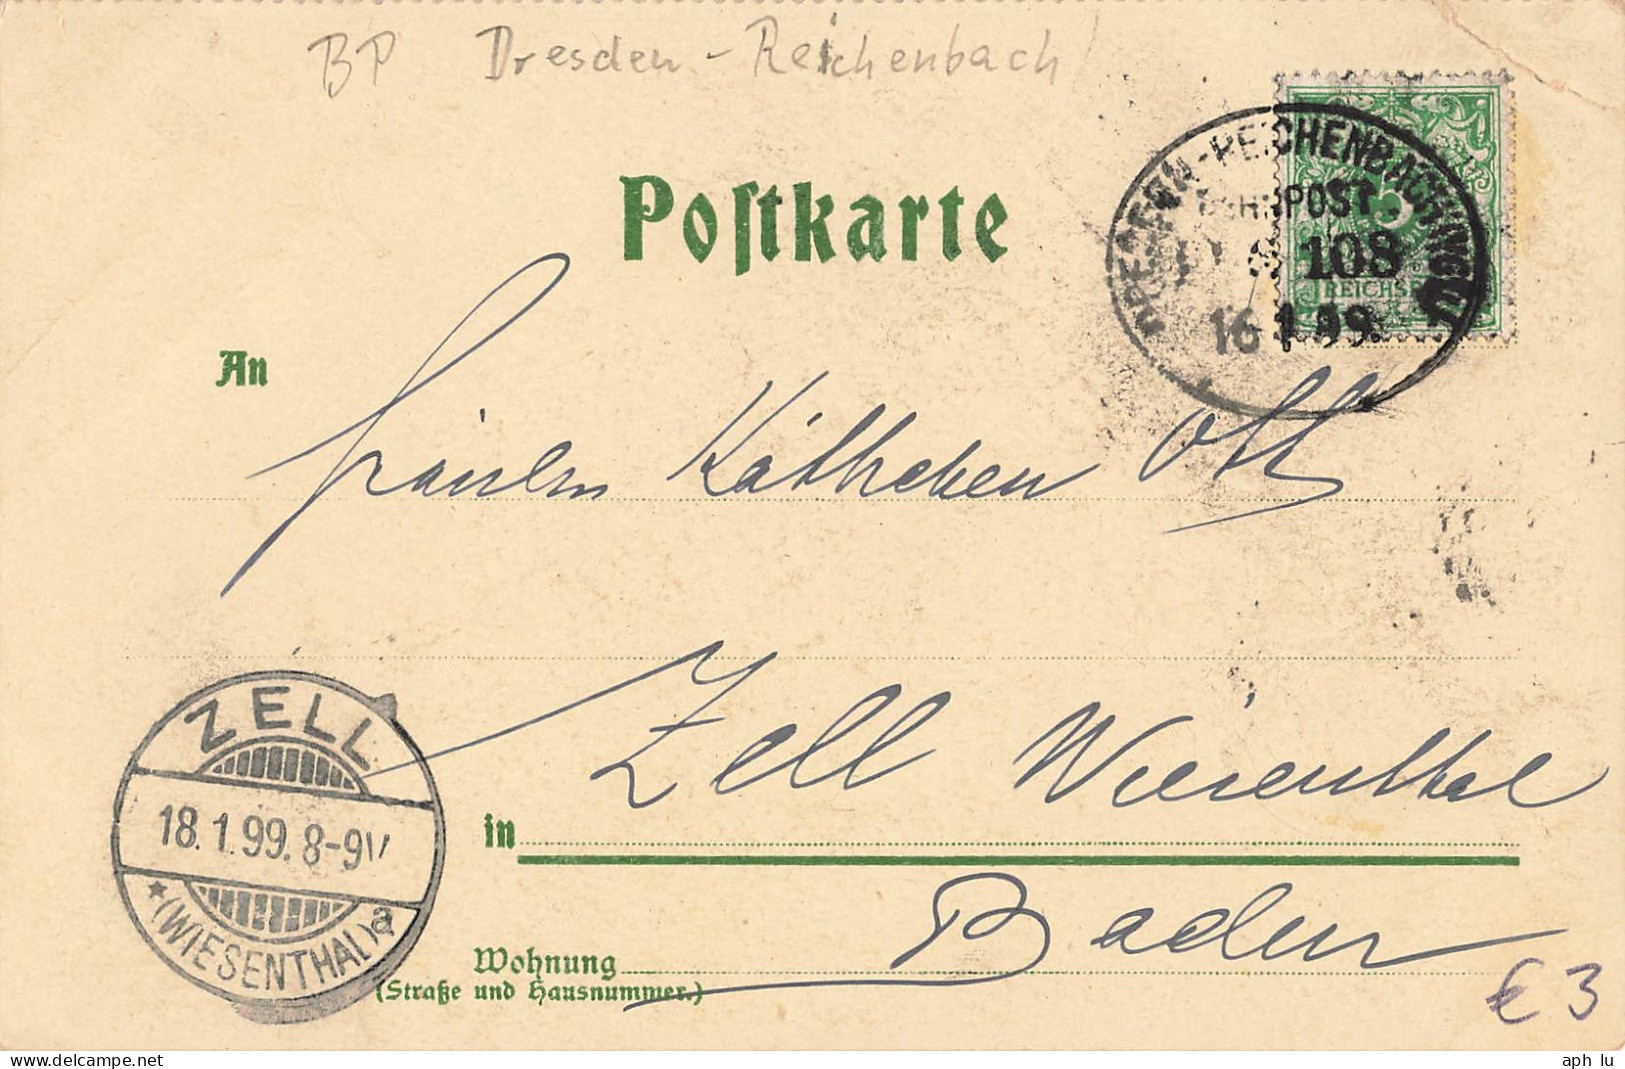 BP Dresden - Reichenbach
Postkarte
DRESDEN-REICHENBACH
BAHNPOST.
108
16 1 99.
5
REICHSP
An
Fräulein Käthchen Ott
ZELL
18.1.99. 8-9V
* (WIESENTHAL) a
Zell Wiesenthal
in
Baden
Wohnung
(Straße und Hausnummer.)
€ 3
aph lu